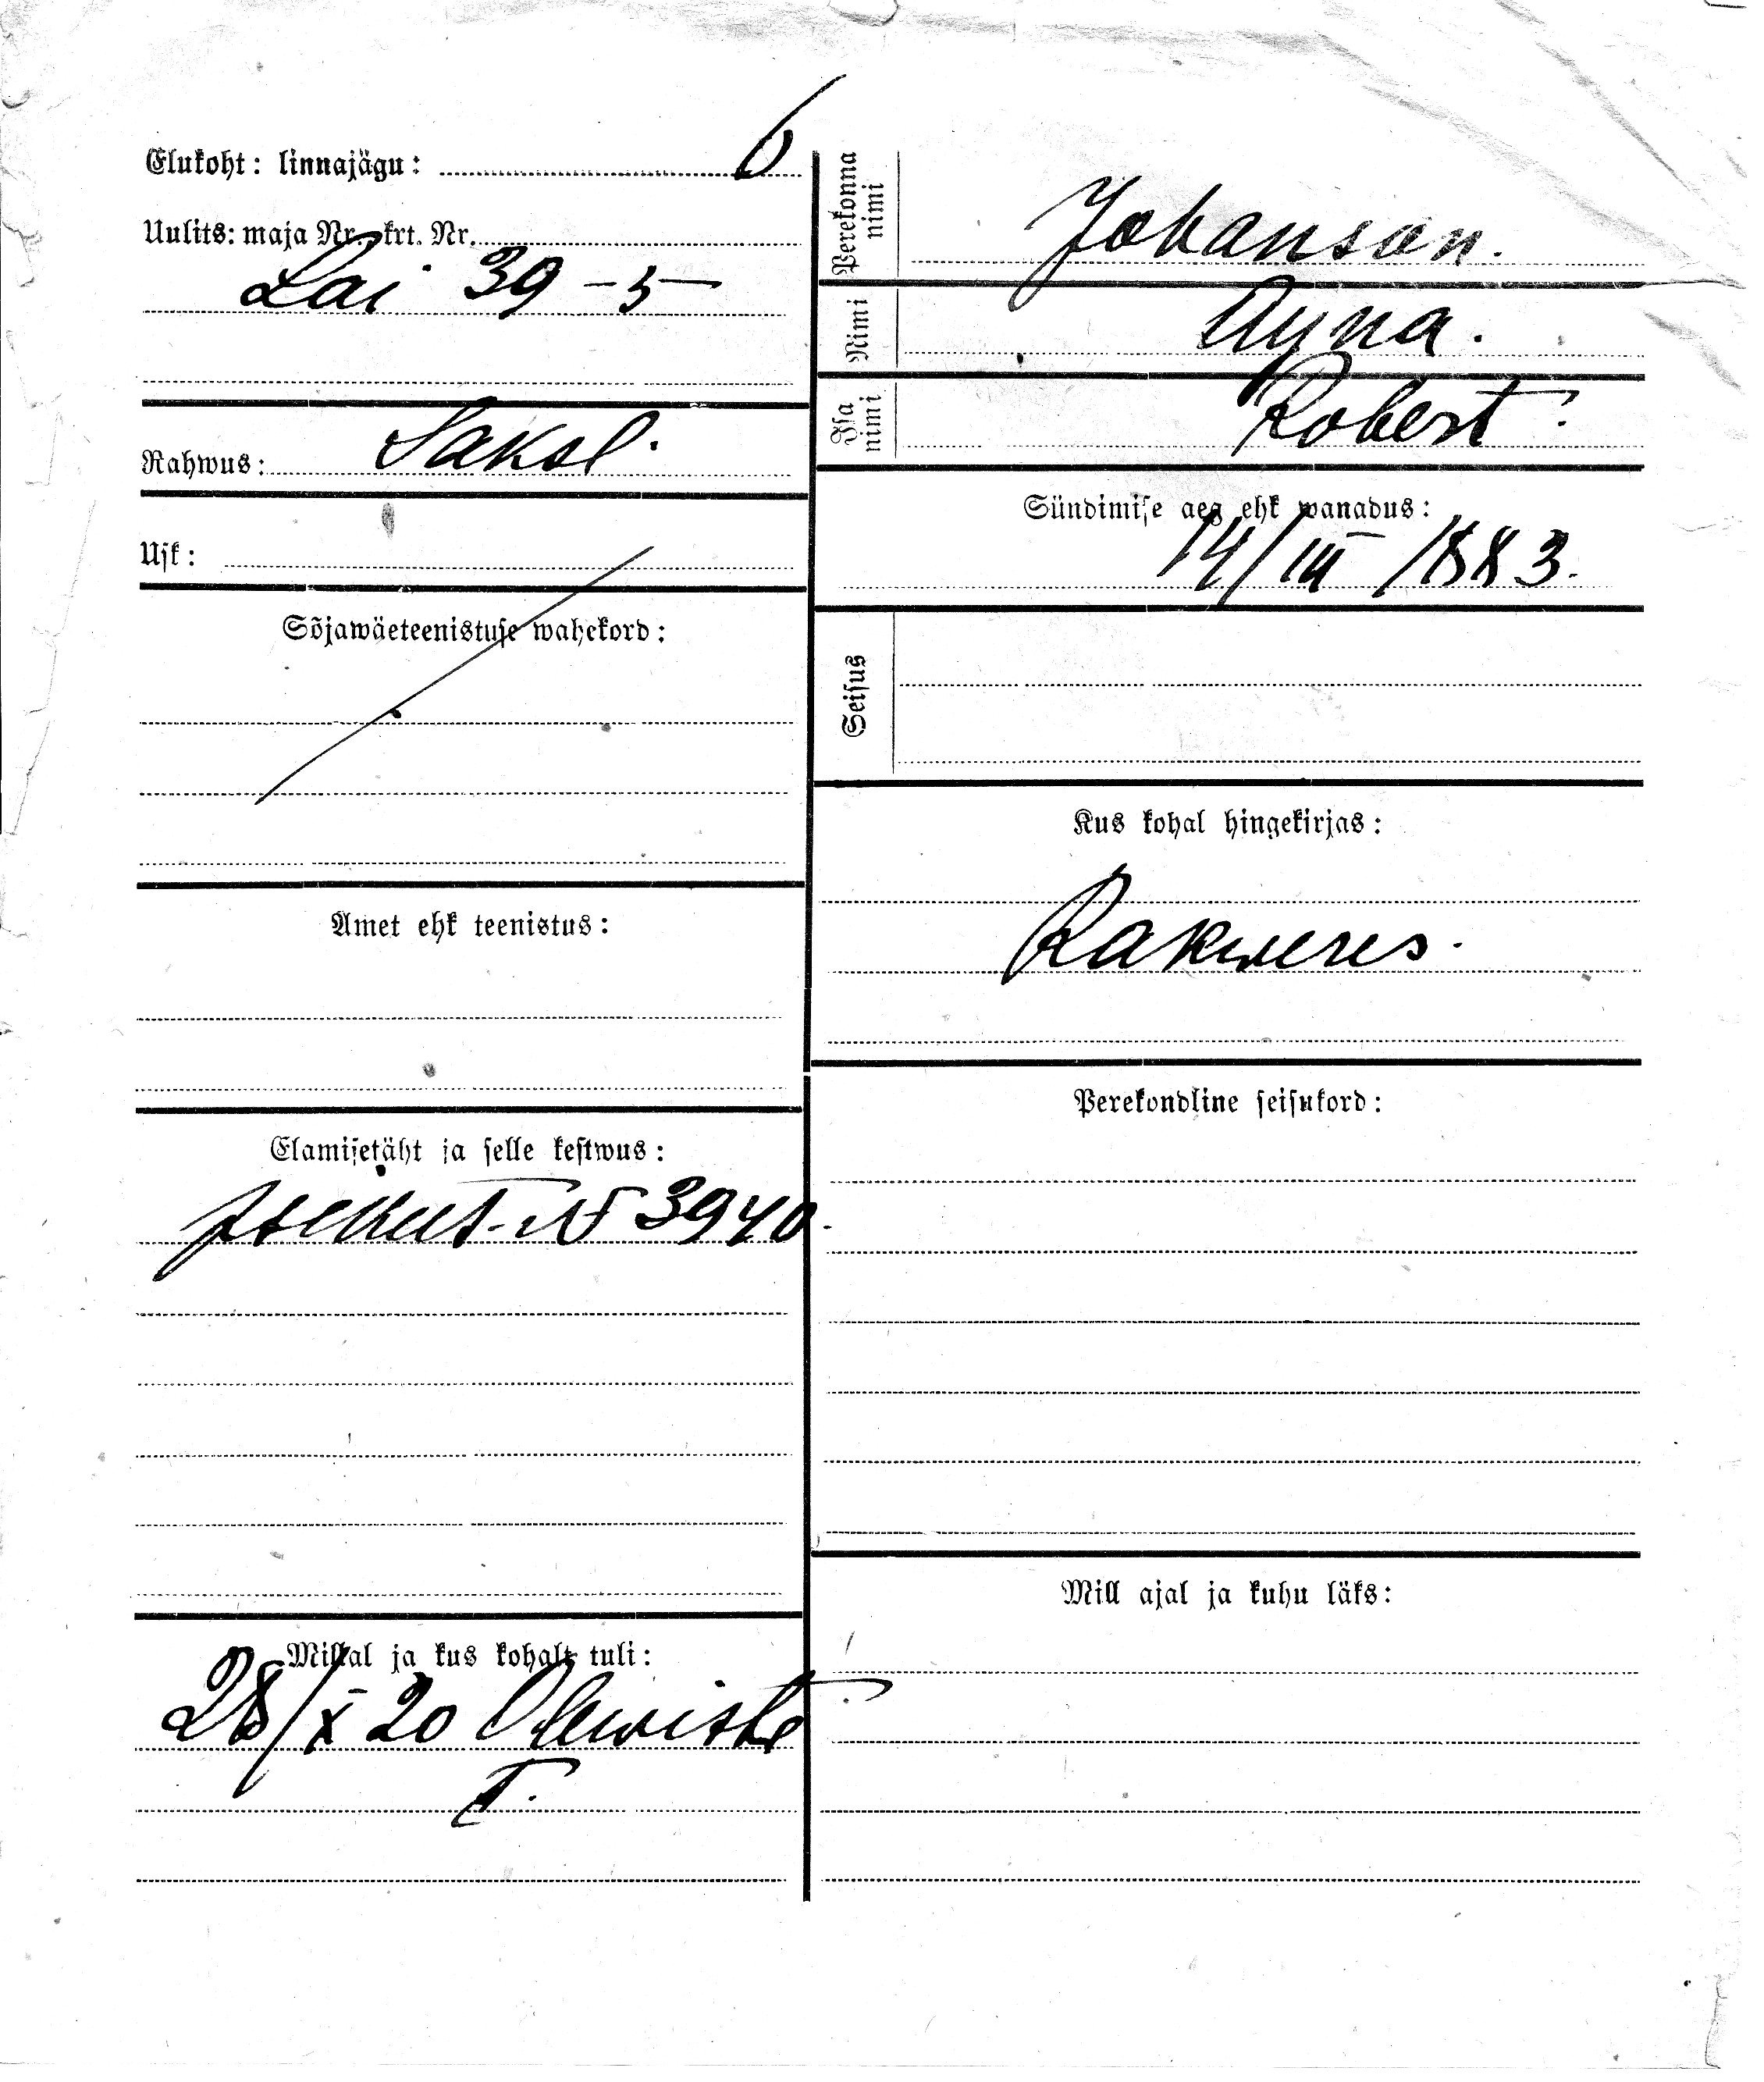 Elukoht: linnajägu: 6
Uulits: maja Nr. krt. Nr.
Lai 39-5
Rahwus: Saksl.
Usk:
Sõjawäeteenistuse wahekord:
Amet ehk teenistus:
Elamisetäht ja selle kestwus:
№ 3940.
Millal ja kus kohalt tuli:
28/X 20 Olewiste
Perekonna nimi
Johanson.
Nimi
Isa nimi
Robert.
Sündimise aeg ehk wanadus:
14/III 1883.
Seisus
Kus kohal hingekirjas:
Rakweres.
Perekondline seisukord:
Mill ajal ja kuhu läks: